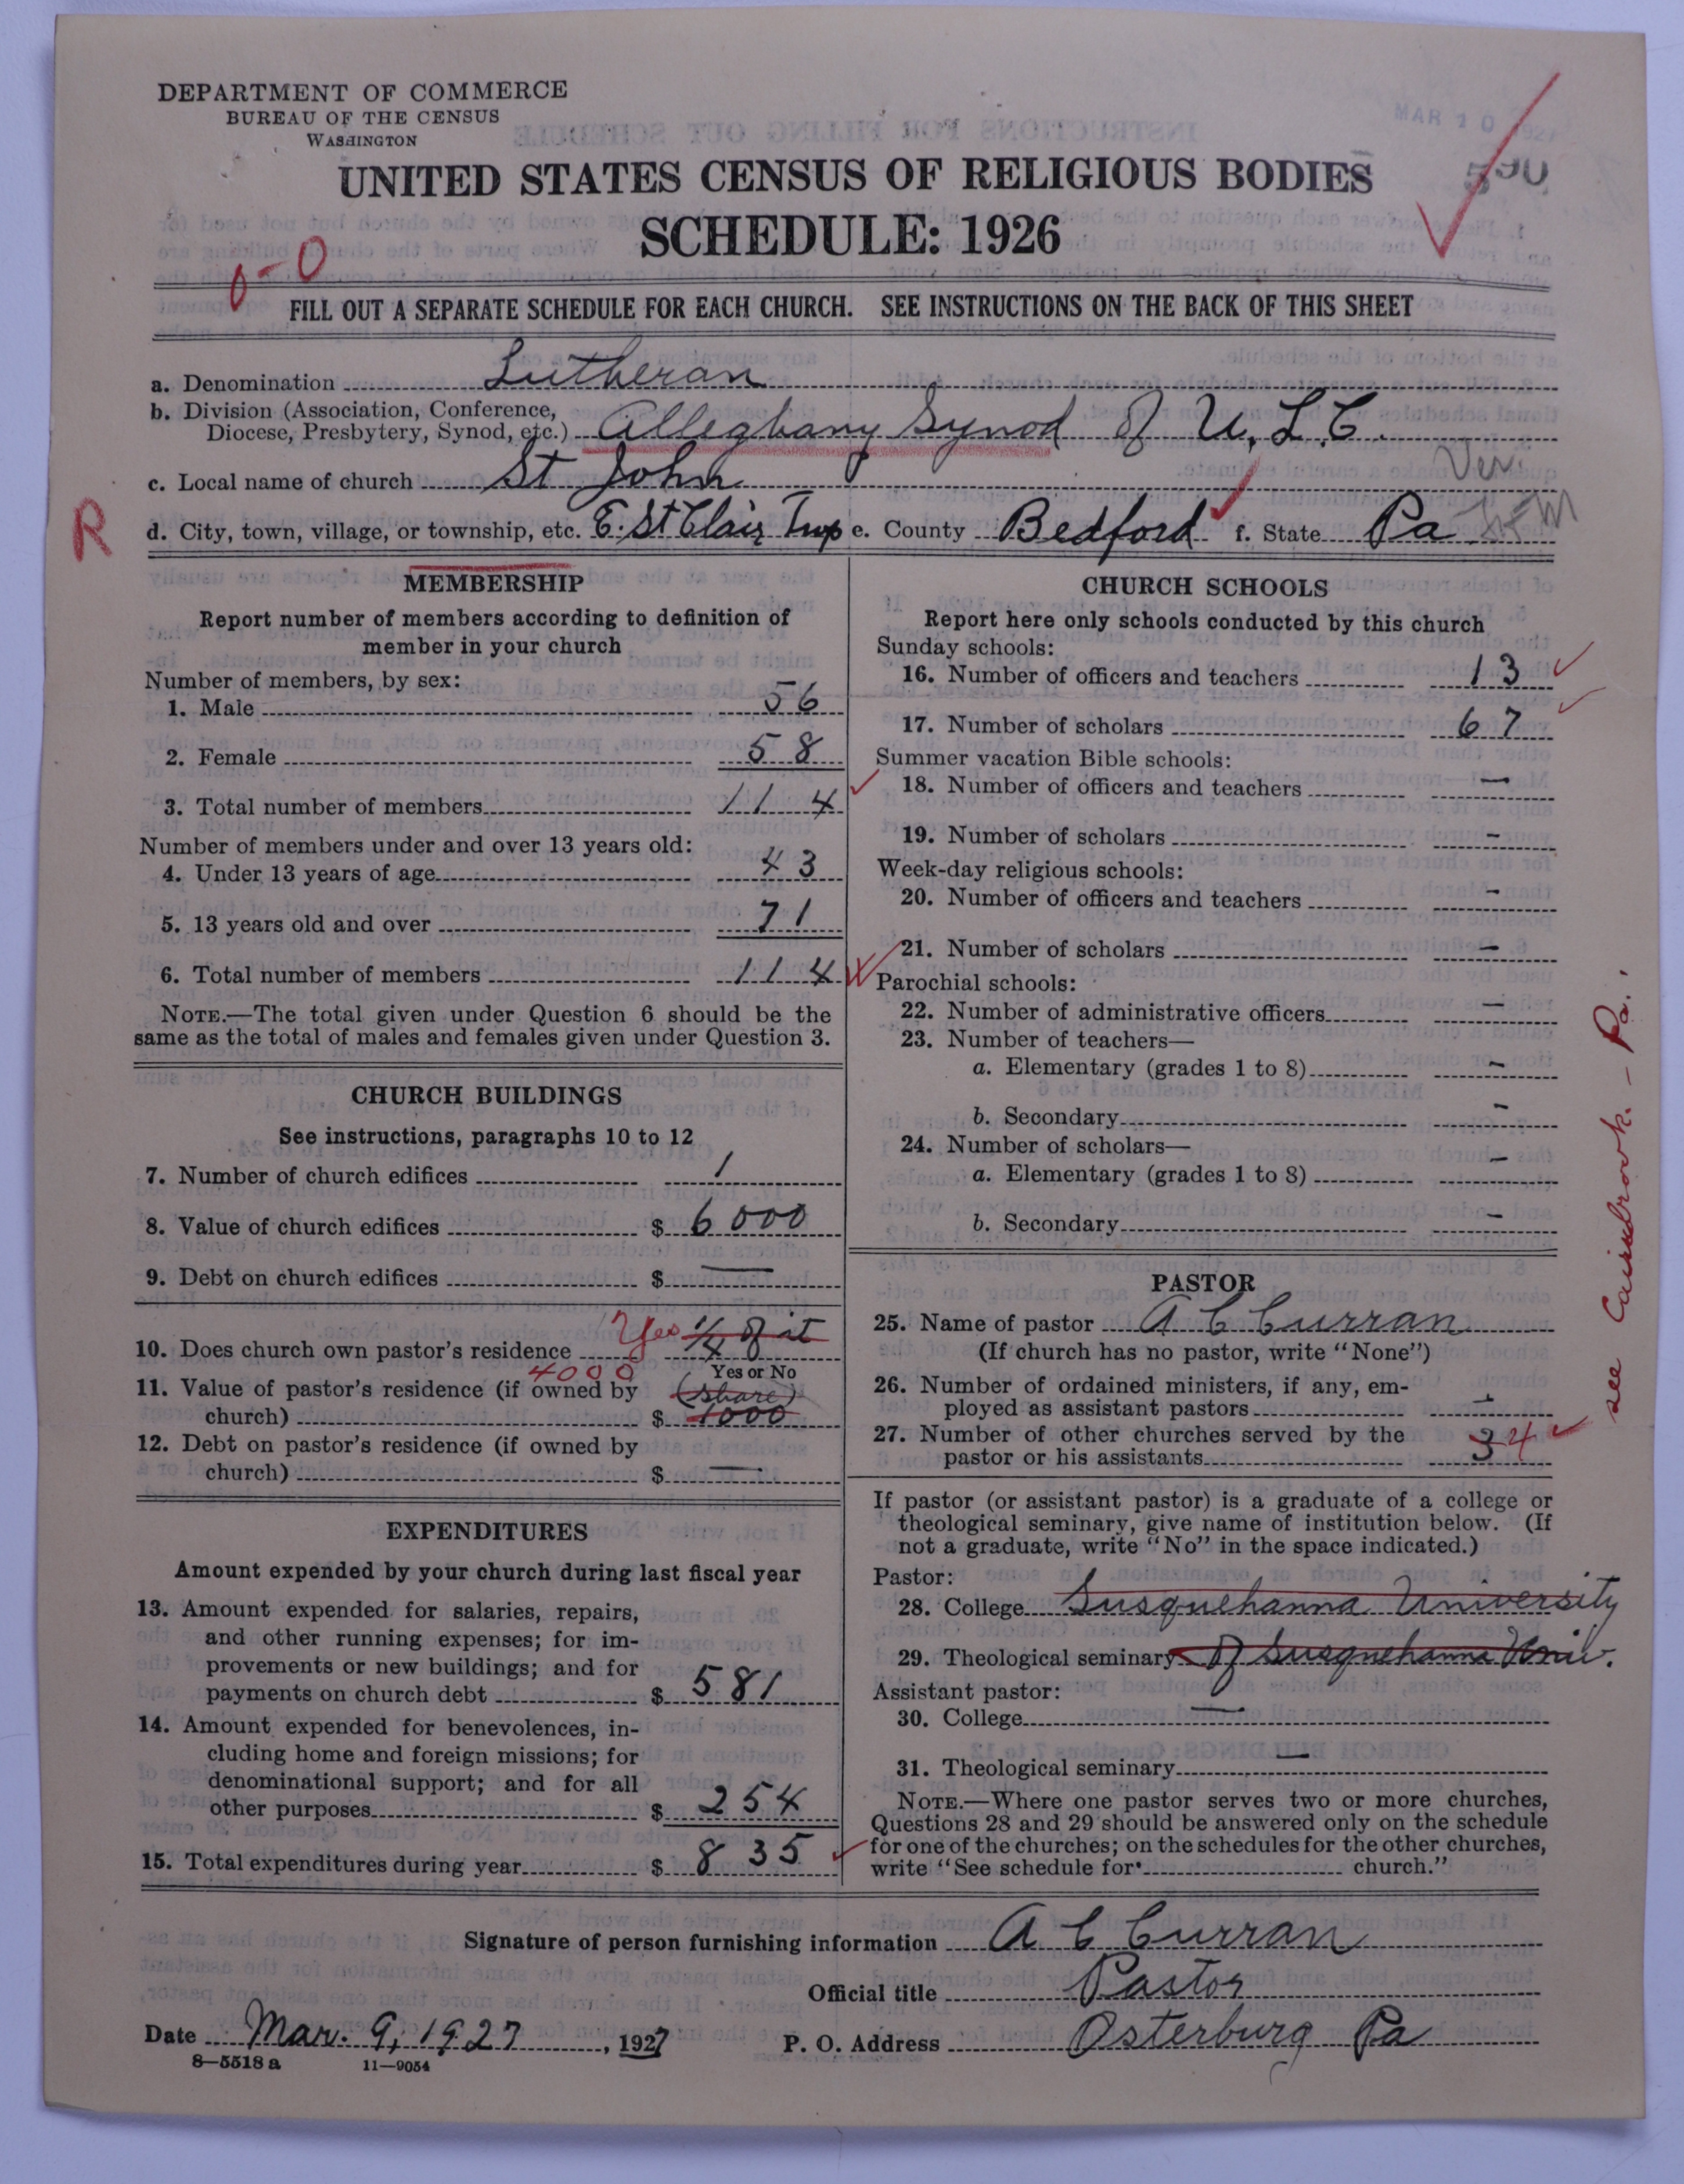 DEPARTMENT OF COMMERCE
BUREAU OF THE CENSUS
WASHINGTON
MAR 10 192
UNITED STATES CENSUS OF RELIGIOUS BODIES
SCHEDULE: 1926
0-0
FILL OUT A SEPARATE SCHEDULE FOR EACH CHURCH. SEE INSTRUCTIONS ON THE BACK OF THIS SHEET
a. Denomination Lutheran
b. Division (Association, Conference,
Diocese, Presbytery, Synod, etc.) Alleghany Synod of U. L. C.
c. Local name of church St John Ver.
R d. City, town, village, or township, etc. E. St Clair Twp e. County Bedford f. State Pa
MEMBERSHIP
Report number of members according to definition of
member in your church
Number of members, by sex:
1. Male 56
2. Female 58
3. Total number of members 114
Number of members under and over 13 years old:
4. Under 13 years of age 43
5. 13 years old and over 71
6. Total number of members 114
NOTE.—The total given under Question 6 should be the
same as the total of males and females given under Question 3.
CHURCH BUILDINGS
See instructions, paragraphs 10 to 12
7. Number of church edifices 1
8. Value of church edifices $ 6000
9. Debt on church edifices $ —
10. Does church own pastor's residence Yes 1/4 of it
Yes or No
4000
11. Value of pastor's residence (if owned by (share)
church) $ 1000
12. Debt on pastor's residence (if owned by
church) $ —
EXPENDITURES
Amount expended by your church during last fiscal year
13. Amount expended for salaries, repairs,
and other running expenses; for im-
provements or new buildings; and for
payments on church debt $ 581
14. Amount expended for benevolences, in-
cluding home and foreign missions; for
denominational support; and for all
other purposes $ 254
15. Total expenditures during year $ 835
CHURCH SCHOOLS
Report here only schools conducted by this church
Sunday schools:
16. Number of officers and teachers 13
17. Number of scholars 67
Summer vacation Bible schools:
18. Number of officers and teachers —
19. Number of scholars —
Week-day religious schools:
20. Number of officers and teachers —
21. Number of scholars —
Parochial schools:
22. Number of administrative officers —
23. Number of teachers—
a. Elementary (grades 1 to 8) —
b. Secondary —
24. Number of scholars—
a. Elementary (grades 1 to 8) —
b. Secondary —
PASTOR
25. Name of pastor A C Curran
(If church has no pastor, write "None")
26. Number of ordained ministers, if any, em-
ployed as assistant pastors —
27. Number of other churches served by the
pastor or his assistants 3 4
If pastor (or assistant pastor) is a graduate of a college or
theological seminary, give name of institution below. (If
not a graduate, write "No" in the space indicated.)
Pastor:
28. College Susquehanna University
29. Theological seminary of Susquehanna Univ.
Assistant pastor:
30. College —
31. Theological seminary —
NOTE.—Where one pastor serves two or more churches,
Questions 28 and 29 should be answered only on the schedule
for one of the churches; on the schedules for the other churches,
write "See schedule for church."
see Cairnbrook - Pa.
Signature of person furnishing information A C Curran
Official title Pastor
Date Mar. 9, 1927, 1927 P. O. Address Osterburg Pa
8—5518 a 11—9054